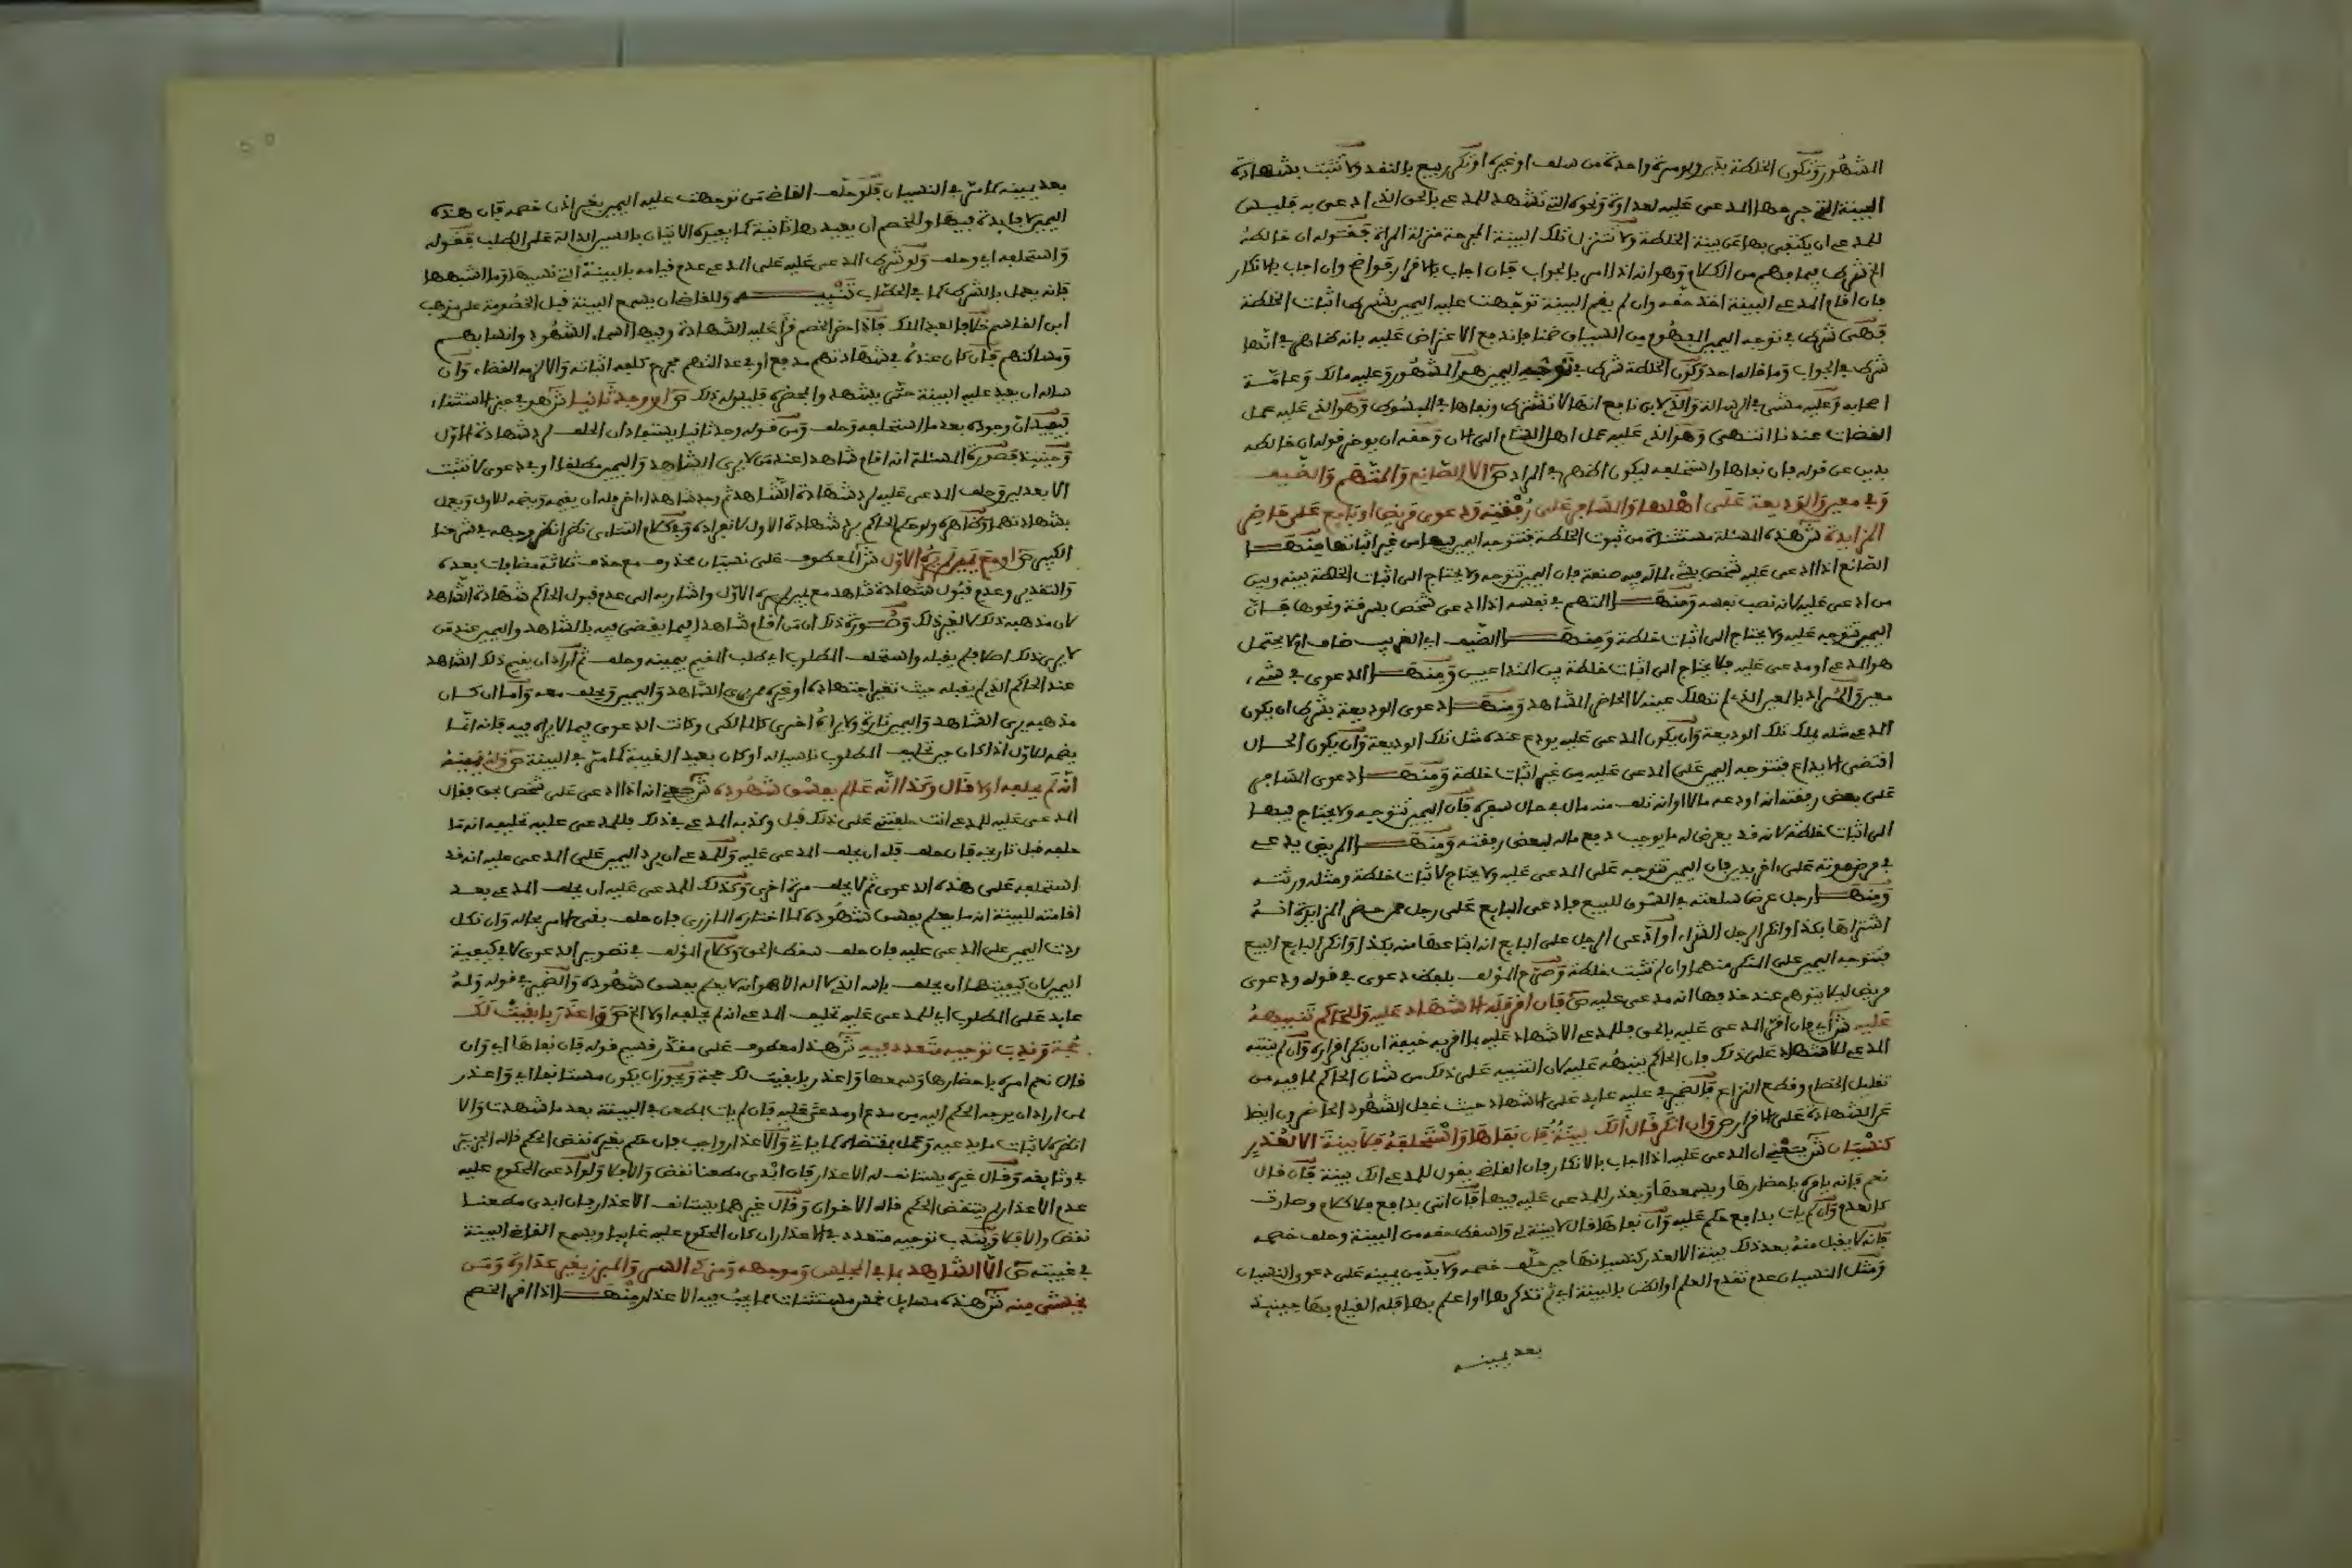 المشهور وتكون الخلطة بدين ولو مرة واحدة من سلف او غيره او تكرر بيع بالنقد ولا تثبت بشهادة
البينة التي جرحها المدعى عليه لعداوة ونحوه التي تشهد للمدعي بالحق الذي ادعى به فليس
للمدعي ان يكتفي بها عن بينة الخلطة ولا تتنزل تلك البينة المجرحة منزلة المراة فقوله ان خالطه
الخ شرط فيما فهم من الكلام وهو انه اذا امر بالجواب فان اجاب بالاقرار فواضح وان اجاب بالانكار
فان اقام المدعي البينة اخذ حقه وان لم يقم البينة توجهت عليه اليمين بشرط اثبات الخلطة
فهي شرط في توجه اليمين المفهوم من السياق ضمنا فاندفع الاعتراض عليه بانه ظاهر في انها
شرط في الجواب وما قاله احد وكون الخلطة شرط في توجه اليمين هو المشهور وعليه مالك وعامة
اصحابه وعليه مشى في الرسالة والذي لابن نافع انها لا تشترط ونفاها في المبسوط وهو الذي عليه عمل
القضات عندنا انتهى وهو الذي عليه عمل اهل الشام الى الان وحقه ان يوخر قوله ان خالطه
بدين عن قوله فان نفاها واستحلفه ليكون اظهر في المراد ص الا الصانع والمتهم والضيف
وفي معين والوديعة على اهلها والمسافر على رفقته ودعوى مريض او بايع على حاضر
المزايدة ش هذه المسئلة مستثناة من ثبوت الخلطة فتتوجه اليمين فيها من غير اثباتها منها
الصانع اذا ادعى عليه شخص بشيء لماله فيه صنعة فان اليمين تتوجه ولا يحتاج الى اثبات الخلطة بينه وبين
من ادعى عليه لانه نصب نفسه ومنها المتهم في نفسه اذا ادعى شخص بسرقة ونحوها فان
اليمين تتوجه عليه ولا يحتاج الى اثبات خلطة ومنها الضيف اي الغريب ضاف او لا يحتمل
هو المدعي او مدعى عليه فلا يحتاج الى اثبات خلطة بين المتداعيين ومنها الدعوى في شيء
معين والمراد بالمعين الذي لم تهلك عينه لا الحاضر المشاهد ومنها دعوى الوديعة بشرط ان يكون
المدعي مثله يملك تلك الوديعة وان يكون المدعى عليه يودع عنده مثل تلك الوديعة وان يكون الحال
اقتضى الايداع فتتوجه اليمين على المدعى عليه من غير اثبات خلطة ومنها دعوى المسافر
على بعض رفقته انه اودعه مالا او انه تلف منه مال في حال سفره فان اليمين تتوجه ولا يحتاج فيها
الى اثبات خلطة لانه قد يعرض له ما يوجب دفع ماله لبعض رفقته ومنها المريض يدعي
في مرض موته على اخر بدين فان اليمين تتوجه على المدعى عليه ولا يحتاج لاثبات خلطة ومثله ورثته
ومنها رجل عرض سلعته في السوق للبيع فادعى البايع على رجل ممن حضر المزايدة انه
اشتراها بكذا وانكر الرجل الشراء او ادعى الرجل على البايع انه ابتاعها منه بكذا وانكر البايع البيع
فتتوجه اليمين على المنكر منهما وان لم تثبت خلطة وصرح المؤلف بلفظ دعوى في قوله ودعوى
مريض ليلا يتوهم عند حذفها انه مدعى عليه ص فان اقر فله الاشهاد عليه وللحاكم تنبيهه
عليه ش اي فان اقر المدعى عليه بالحق فللمدعي الاشهاد عليه بما اقر به خيفة ان ينكر اقراره وان لم ينتبه
المدعي للاشهاد على ذلك فان الحاكم ينبهه عليه لان التنبيه على ذلك من شان الحاكم لما فيه من
تقليل الخصام وقطع النزاع فالضمير في عليه عايد على الاشهاد حيث غفل الشهود الحاضرون ايضا
عن الشهادة على الاقرار ص وان انكر قال الك بينة فان نفاها واستحلفه فلا بينة الا لعذر
كنسيان ش يعني ان المدعى عليه اذا اجاب بالانكار فان القاضي يقول للمدعي الك بينة فان قال
نعم فانه يامره باحضارها ويسمعها ويعذر للمدعى عليه فيها فان اتى بدافع فلا كلام وصارت
كالعدم وان لم يات بدافع حكم عليه وان نفاها قال لا بينة لي واسقط حقه من البينة وحلف خصمه
فانه لا يقبل منه بعد ذلك بينة الا لعذر كنسيانها حين حلف خصمه ولا بد من يمينه على دعوى النسيان
ومثل النسيان عدم تقدم العلم او الظن بالبينة اي ثم تذكرها او اعلم بها فله القيام بها حينيذ
بعد يمينه
بعد يمينه كما مر في النسيان فلو حلف القاضي من توجهت عليه اليمين بغير اذن خصمه فان هذه
اليمين لا فايدة فيها وللخصم ان يعيدها ثانية كما يفيده الاتيان بالسين الدالة على الطلب فقوله
واستحلفه اي وحلف ولو شرط المدعى عليه على المدعي عدم قيامه بالبينة التي نسيها وما اشبهها
فانه يعمل بالشرط كما في الحطاب تنبيه وللقاضي ان يسمع البينة قبل الخصومة على مذهب
ابن القاسم خلافا لعبد الملك فاذا حضر الخصم قرا عليه الشهادة وفيها اسماء الشهود وانسابهم
ومساكنهم فان كان عنده في شهادتهم مدفع او في عدالتهم مجرح كلفه اثباته والا لزمه القضاء وان
ساله ان يعيد عليه البينة حتى يشهدوا بمحضره فليس له ذلك ص او وجد ثانيا ش هو في حيز الاستثناء
يفيد ان وجوده بعد ما استحلفه وحلف ومن قوله وجد ثانيا يستفاد ان الحلف لرد شهادة الاول
وحينيذ فصورة المسئلة انه اقام شاهدا عند من لا يرى الشاهد واليمين مطلقا او في دعوى لا تثبت
الا بعدلين وحلف المدعى عليه لرد شهادة الشاهد ثم وجد شاهدا اخر فله ان يقيمه ويضمه للاول ويعمل
بشهادتهما وظاهره ولو حكم الحاكم برد شهادة الاول لانفراده وفي كلام التتاءي نظر انظر وجهه في شرحنا
الكبير ص او مع يمين لم يره الاول ش المعطوف على نسيان محذوف مع حذف ثلاثة مضافات بعده
والتقدير وعدم قبول شهادة شاهد مع يمين لم يره الاول واشار به الى عدم قبول الحاكم شهادة الشاهد
لان مذهبه ذلك لا لغير ذلك وصورة ذلك ان من اقام شاهدا فيما يقضى فيه بالشاهد واليمين عند من
لا يرى ذلك اصلا فلم يقبله واستحلف المطلوب اي طلب المقيم يمينه وحلف ثم اراد ان يقيم ذلك الشاهد
عند الحاكم الذي لم يقبله حيث تغير اجتهاده او غيره ممن يرى الشاهد واليمين ويحلف معه واما ان كان
مذهبه يرى الشاهد واليمين تارة ولا يراه اخرى كالمالكي وكانت الدعوى فيما لا يراه فيه فانه انما
يضمه للاول اذا كان حين تحليف المطلوب ناسيا له او كان بعيد الغيبة كما مر في البينة ص وله يمينه
انه لم يحلفه اولا قال وكذا انه عالم بفسق شهوده ش يعني انه اذا ادعى على شخص بحق فقال
المدعى عليه للمدعي انت حلفتني على ذلك قبل وكذبه المدعي في ذلك فللمدعى عليه تحليفه انه ما
حلفه قبل تاريخه فان حلف فله ان يحلف المدعى عليه وللمدعي ان يرد اليمين على المدعى عليه انه قد
استحلفه على هذه الدعوى ثم لا يحلف مرة اخرى وكذلك للمدعى عليه ان يحلف المدعي بعد
اقامته للبينة انه ما يعلم بفسق شهوده كما اختاره المازري فان حلف بقي الامر بحاله وان نكل
ردت اليمين على المدعى عليه فان حلف سقط الحق وكلام المؤلف في تصوير الدعوى لا في كيفية
اليمين لان كيفيتها ان يحلف بالله الذي لا اله الا هو انه لا يعلم بفسق شهوده والضمير في قوله وله
عايد على المطلوب اي للمدعى عليه تحليف المدعي انه لم يحلفه اولا الخ ص واعذر بابقيت لك
حجة وندب توجيه متعدد فيه ش هذا معطوف على مقدر قسيم قوله فان نفاها اي وان
قال نعم امره باحضارها وسمعها واعذر بابقيت لك حجة ويجوز ان يكون مستانفا اي واعذر
لمن اراد ان يوجه الحكم اليه من مدع او مدعى عليه فان لم يات بطعن في البينة بعد ما شهدت والا
انظره لاثبات ما يدعيه وعمل بمقتضاه كما ياتي والاعذار واجب فان حكم بغيره نقض الحكم قاله الجزيري
في وثايقه وقال غيره يستانف له الاعذار فان ابدى مطعنا نقض والا فلا ولو ادعى المحكوم عليه
عدم الاعذار لم ينتقض الحكم قاله الاخوان وقال غيرهما يستانف الاعذار فان ابدى مطعنا
نقض والا فلا ويندب توجيه متعدد في الاعذار ان كان المحكوم عليه غايبا ويسمع القاضي البينة
في غيبته ص الا الشاهد بما في المجلس وموجهه ومزكي السر والمبرز بغير عداوة ومن
يخشى منه ش هذه مسايل خمس مستثنات مما يجب فيه الاعذار منها اذا اقر الخصم